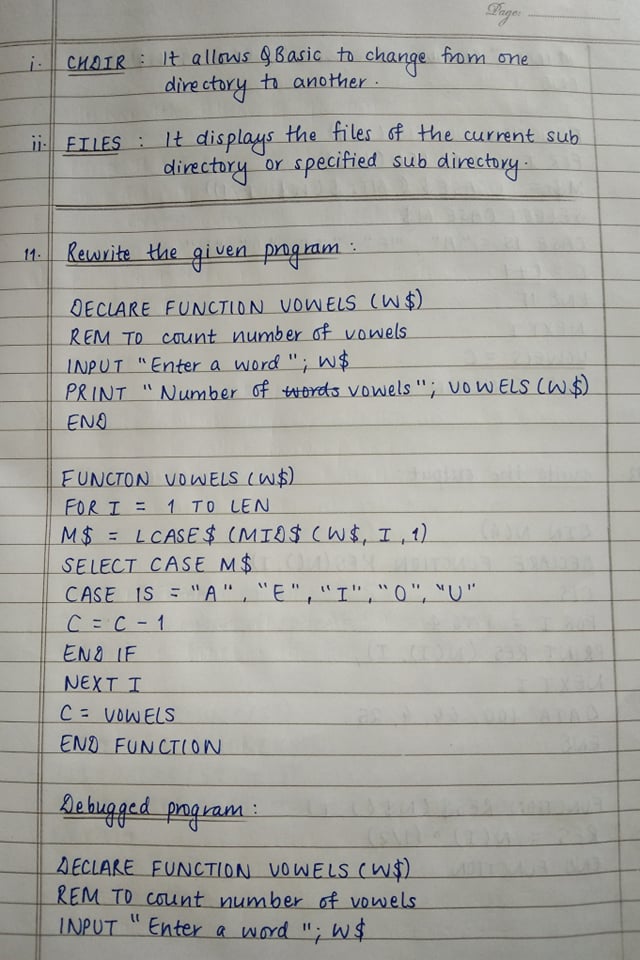 Page:
i. CHDIR : It allows QBasic to change from one
directory to another.
ii. FILES : It displays the files of the current sub
directory or specified sub directory.
11. Rewrite the given program :
DECLARE FUNCTION VOWELS (W$)
REM TO count number of vowels
INPUT "Enter a word"; W$
PRINT "Number of words vowels"; VOWELS(W$)
END
FUNCTON VOWELS (W$)
FOR I = 1 TO LEN
M$ = LCASE$ (MID$ (W$, I, 1)
SELECT CASE M$
CASE IS = "A", "E", "I", "O", "U"
C = C - 1
END IF
NEXT I
C = VOWELS
END FUNCTION
Debugged program :
DECLARE FUNCTION VOWELS (W$)
REM TO count number of vowels
INPUT "Enter a word"; W$